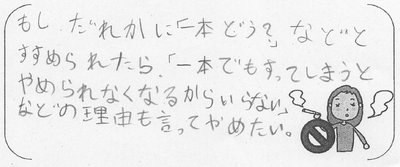 もし だれかに「一本どう?」などと
すすめられたら、「一本でもすってしまうと
やめられなくなるからいらない」
などの理由も言ってやめたい。